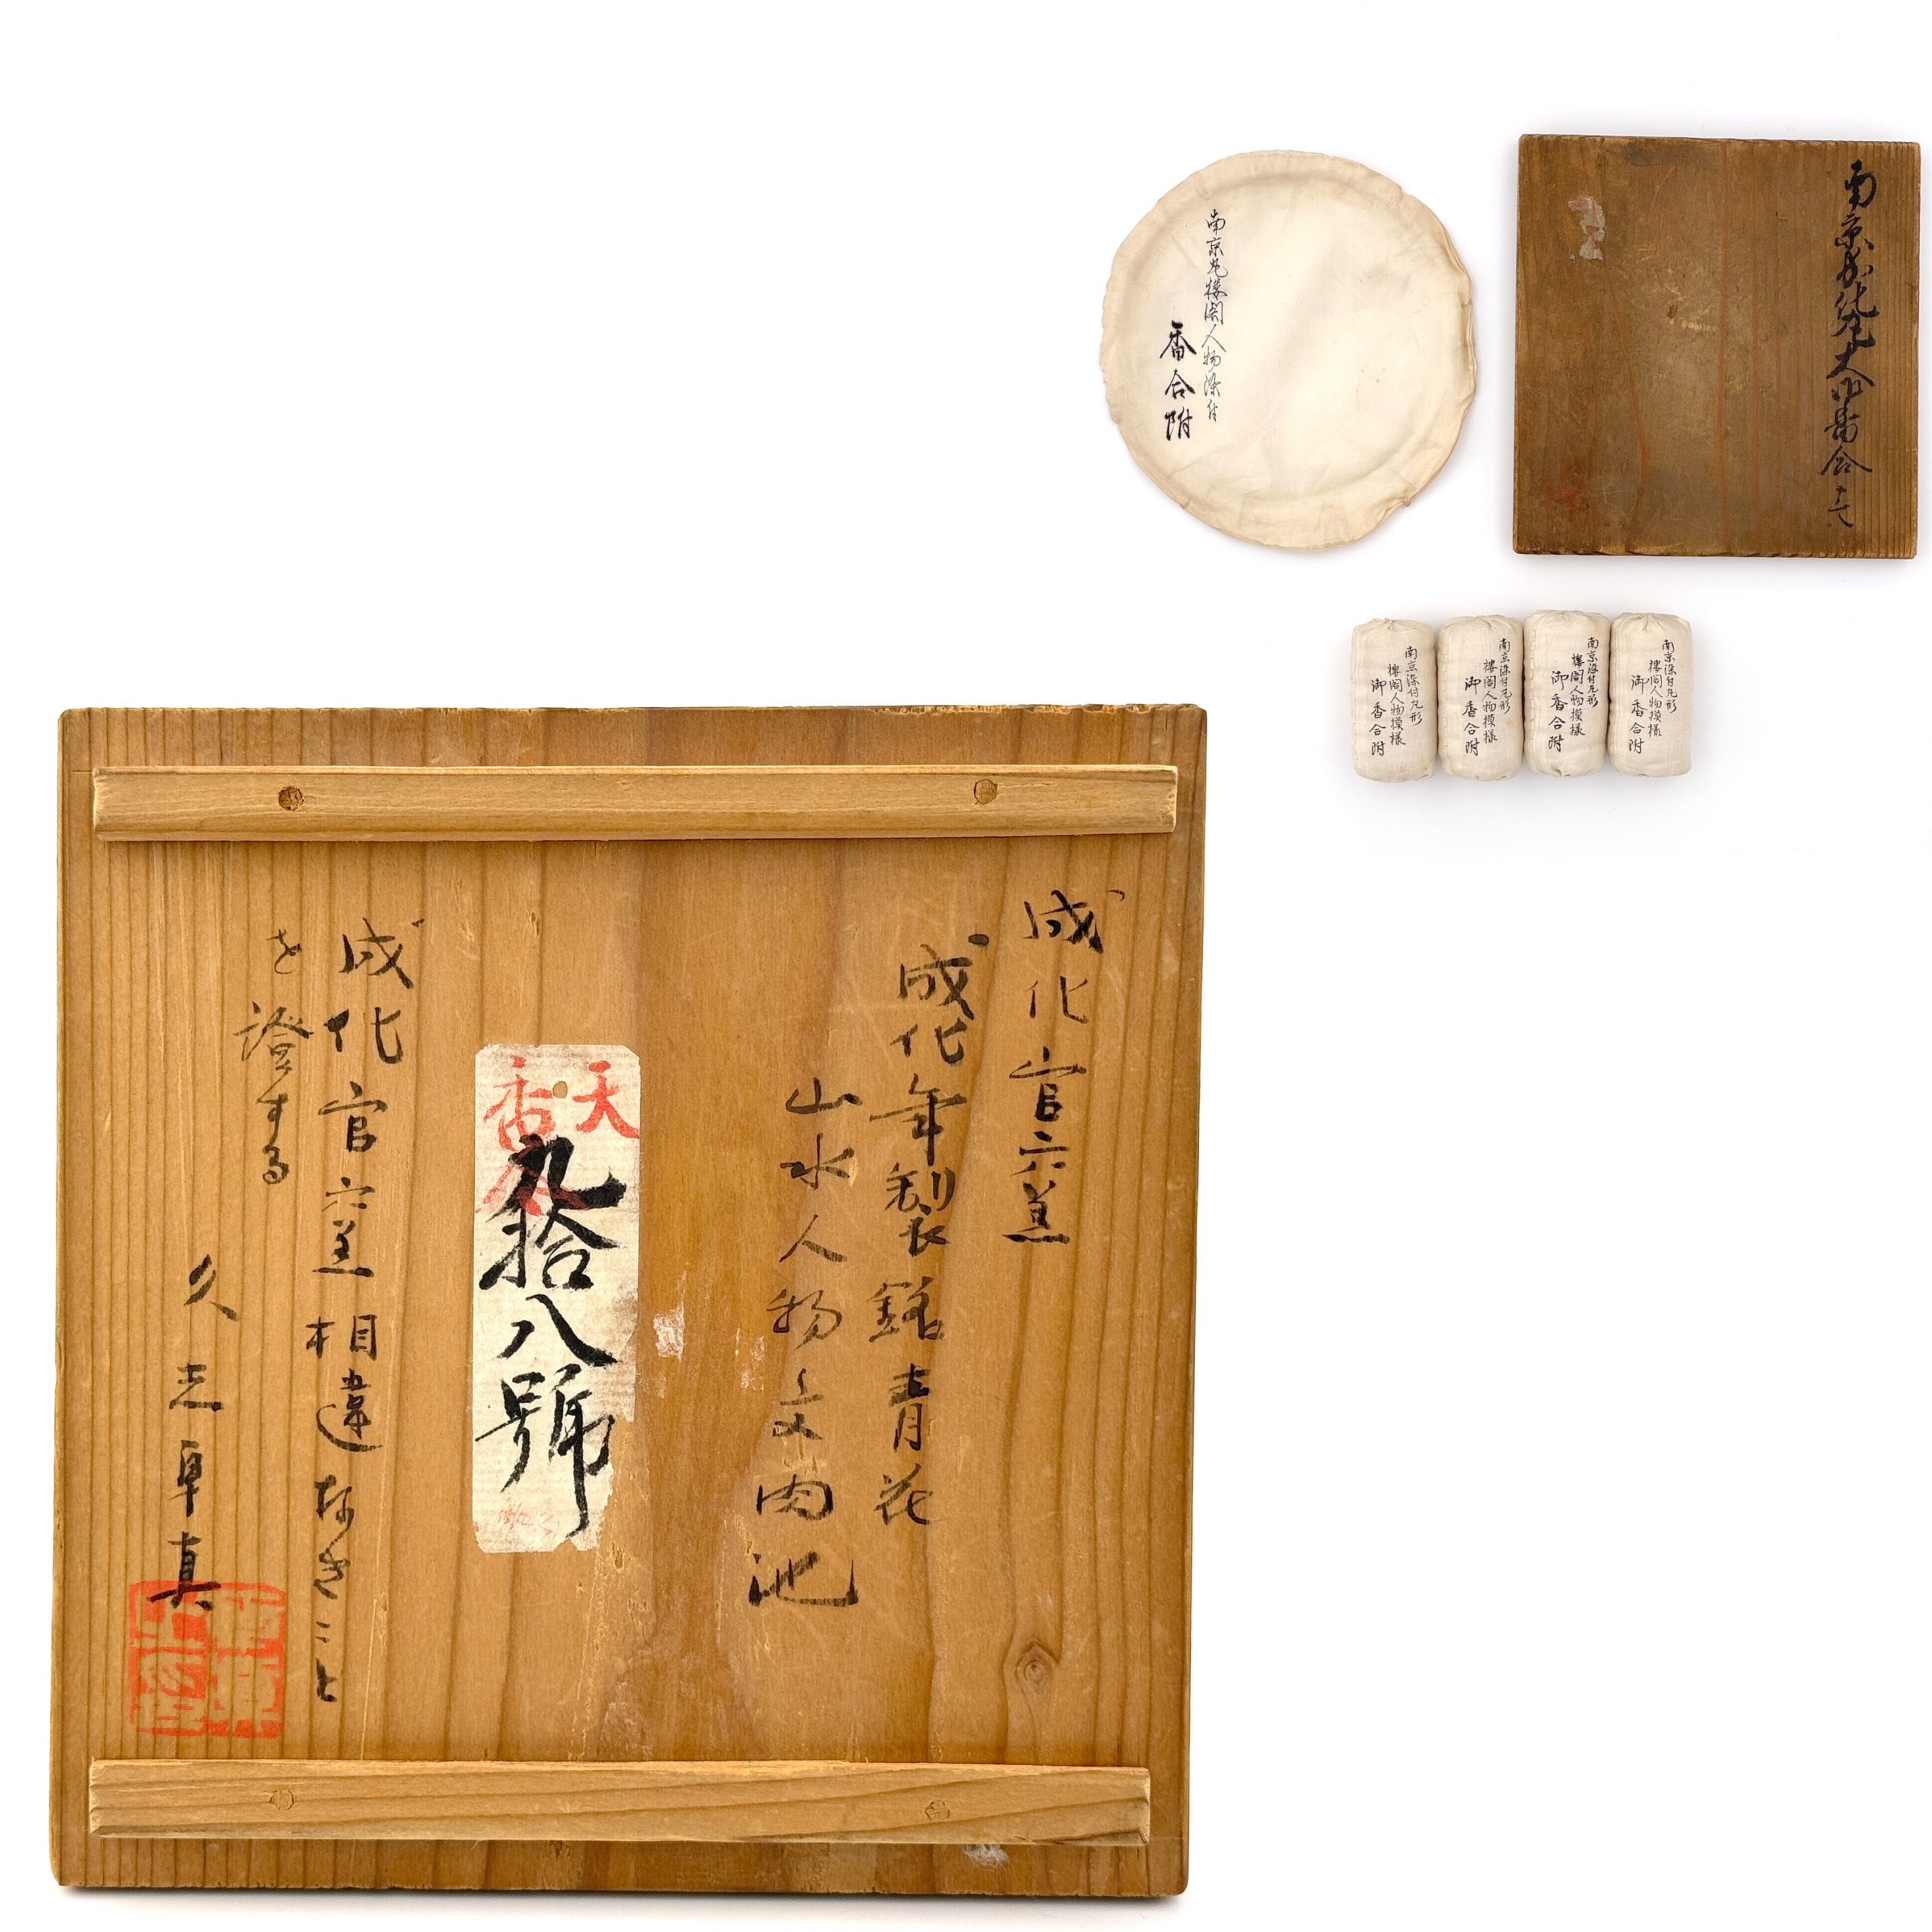 南京丸樓閣人物染付
香合附
南京染付丸大作香合
南京染付丸形
樓閣人物模様
御香合附
南京染付丸形
樓閣人物模様
御香合附
南京染付丸形
樓閣人物模様
御香合附
南京染付丸形
樓閣人物模様
御香合附
成化官窯
成化年製銘青花
山水人物文肉池
天
香合
九拾八號
成化官窯相違なきこと
を證する
久志卓真